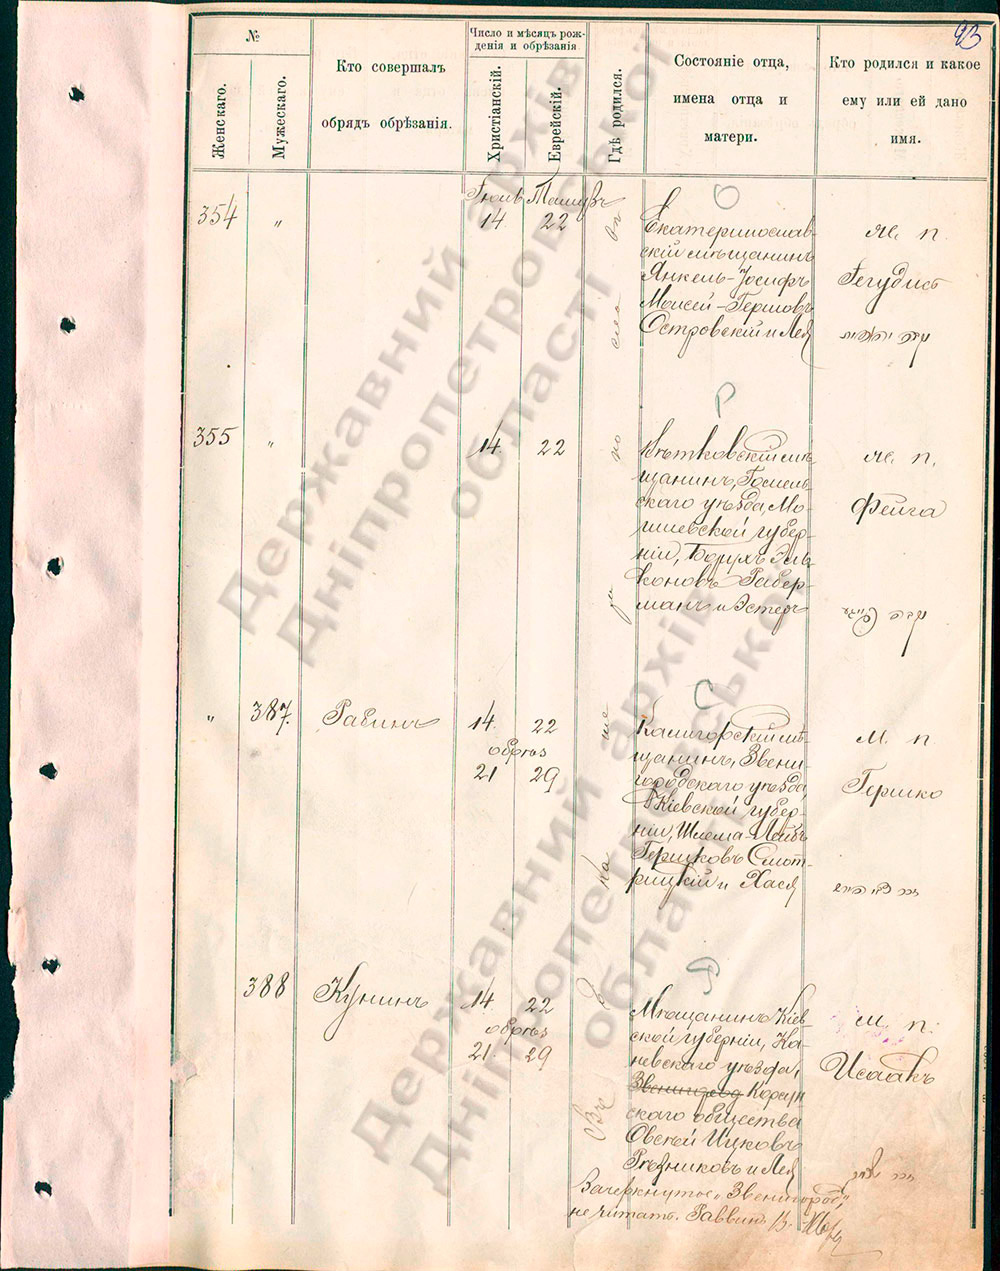 93
№
Женскаго.
Мужескаго.
Кто совершалъ
обрядъ обрѣзанія.
Число и мѣсяцъ рож-
денія и обрѣзанія
Христіанскій.
Еврейскій.
Гдѣ родился.
Состояніе отца,
имена отца и
матери.
Кто родился и какое
ему или ей дано
имя.
Іюль Тамузъ
354 „ 14 22
О
Екатеринослав-
скій мѣщанинъ
Янкель-Іосифъ
Мовсей-Гершовъ
Островскій и Лея
ж. п.
Іегудисъ
355 „ 14. 22
Р
Вѣтковскій мѣ-
щанинъ, Гомель-
скаго уѣзда, Мо-
гилевской губер-
ніи, Борухъ Эль-
коновъ Рабер-
манъ и Эстеръ
ж. п.
Фейга
„ 387. Равинъ 14. 22
обрѣз
21 29
С
Калигорскій мѣ-
щанинъ, Звени-
городскаго уѣзда,
Кіевской губер-
ніи, Шлема-Лейбъ
Гершковъ Смот-
рицкій и Хася
м. п
Гершко
388 Кунинъ 14. 22
обрѣз
21. 29
Р
Мѣщанинъ Кіев-
ской губерніи, Ка-
невскаго уѣзда,
Звенигород Корсун
скаго общества
Овсей Ицковъ
Рѣзниковъ и Лея
м. п.
Исаакъ
Зачеркнутое „Звенигород“
не читать. Раввинъ
Державний архів
Дніпропетровської
області
Державний архів
Дніпропетровської
області